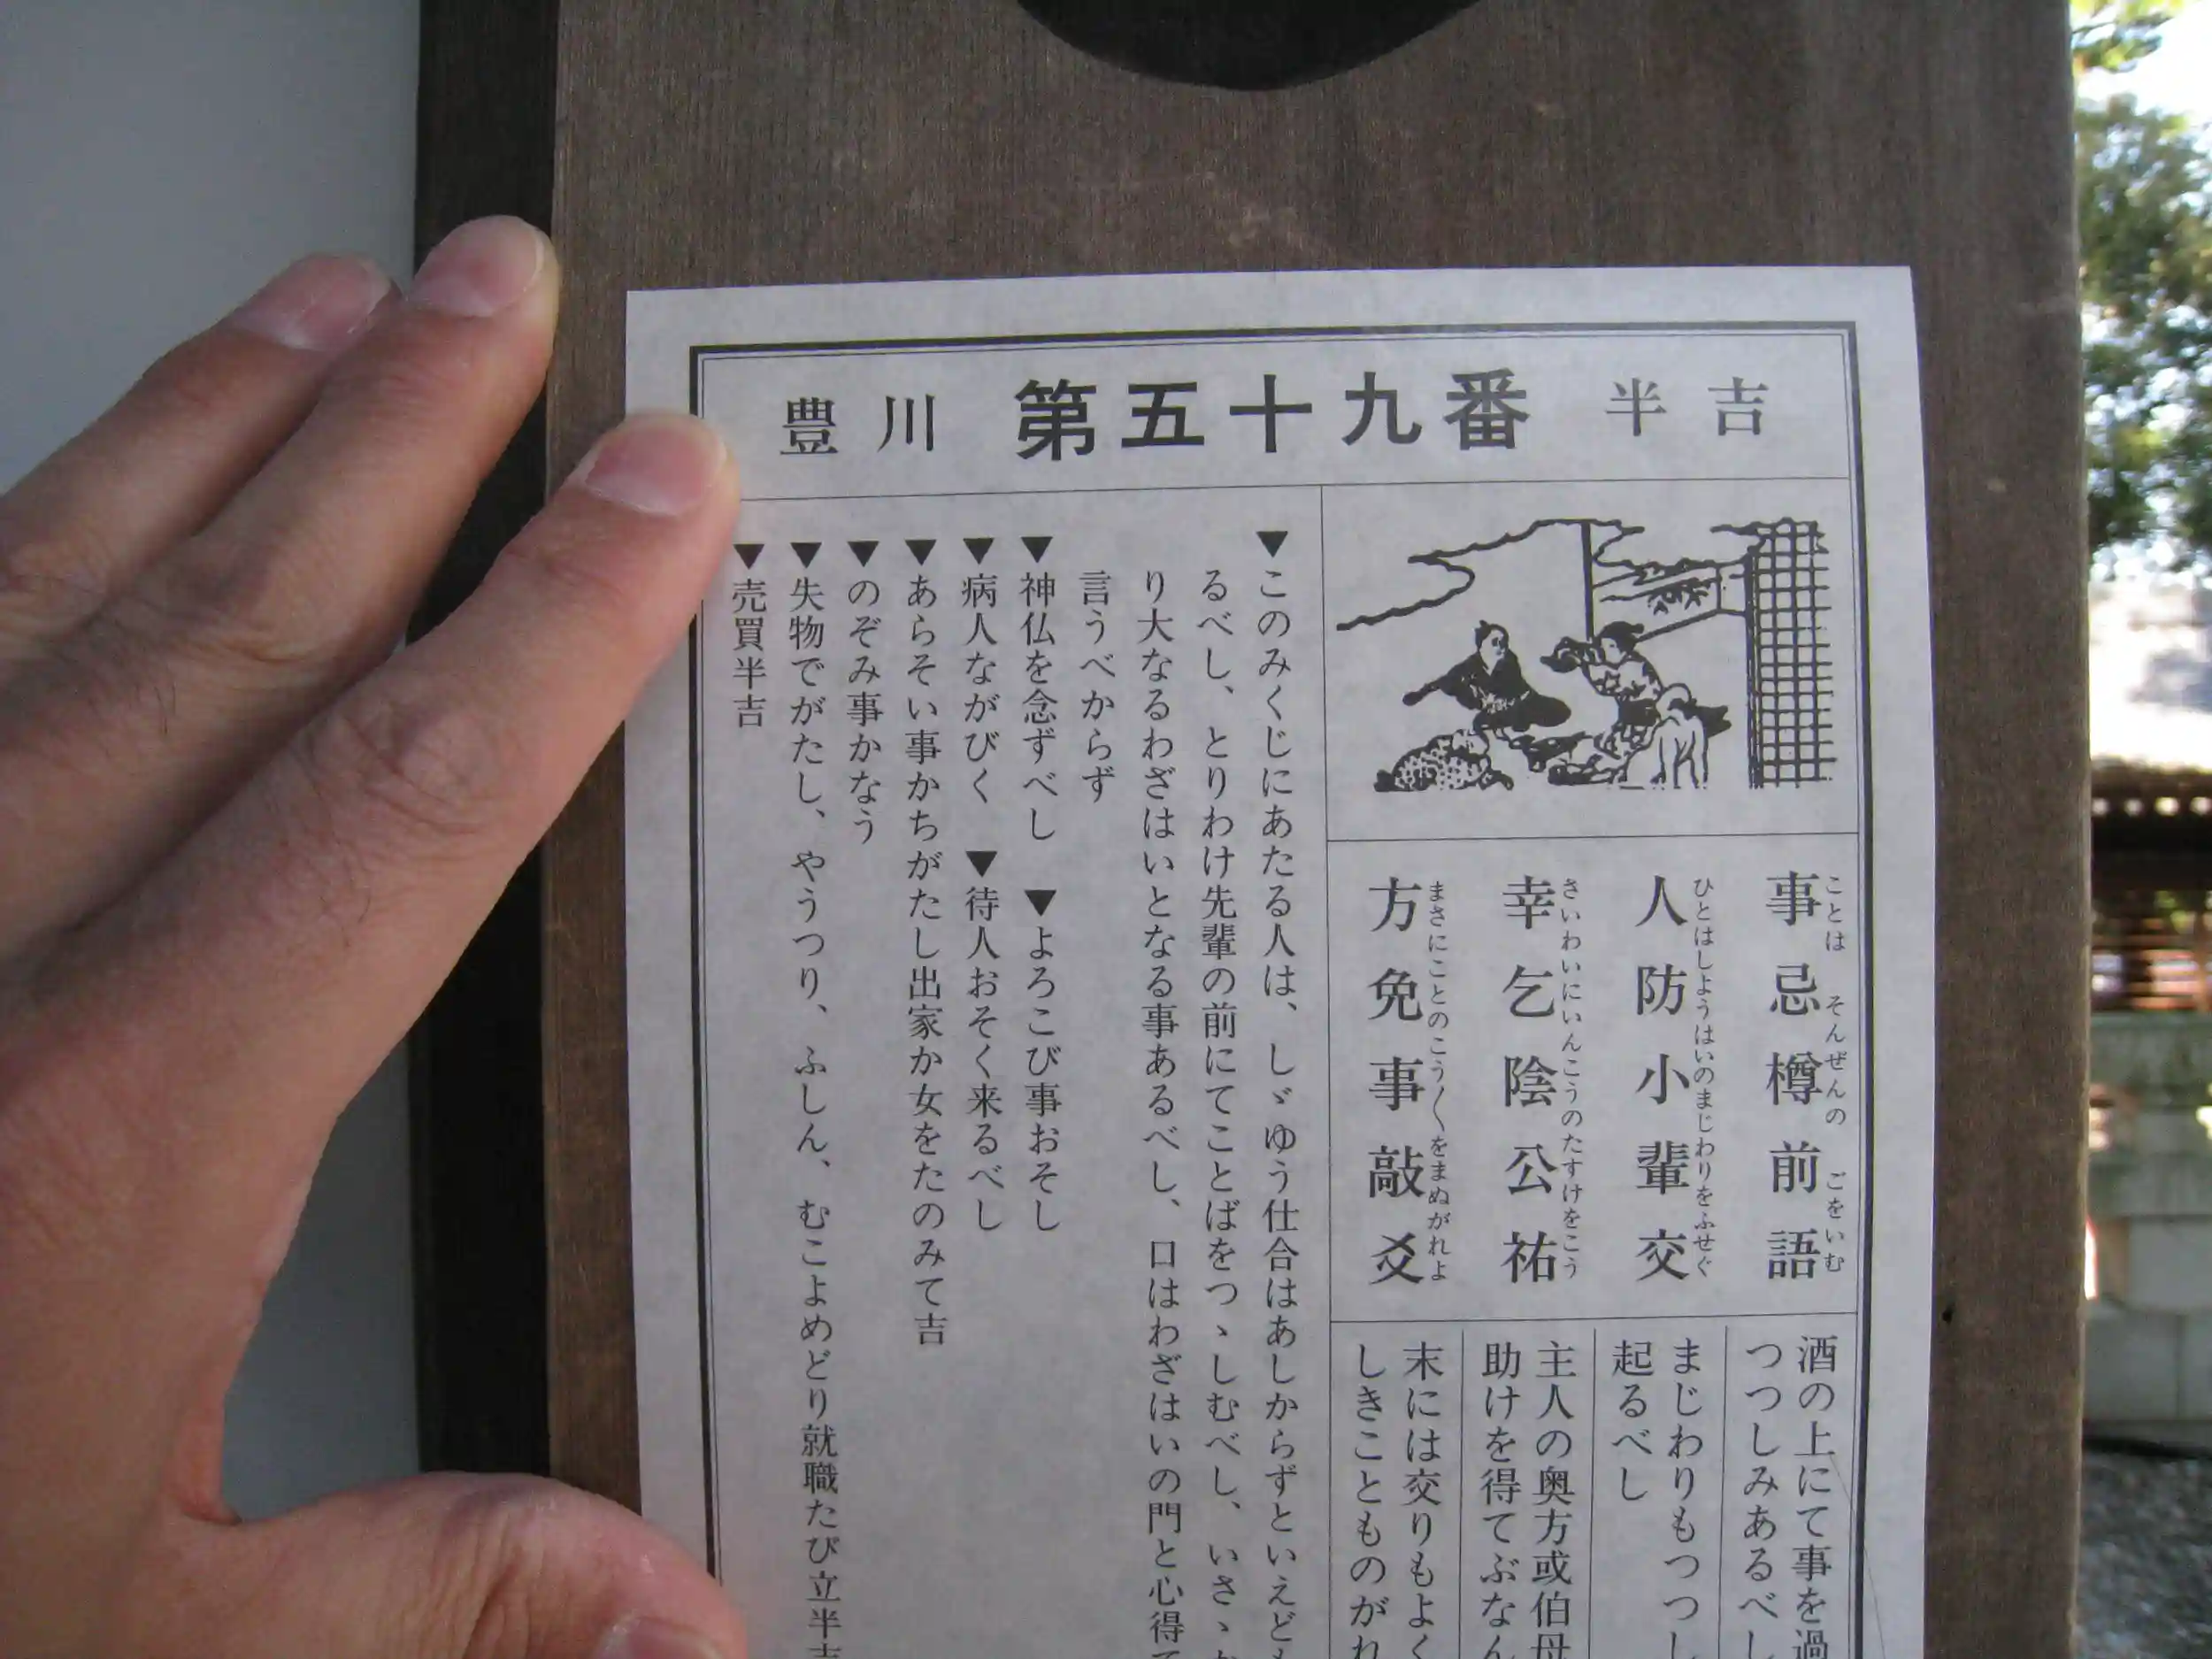 豊川 第五十九番 半吉
事忌樽前語
ことは そんぜんの ごをいむ
人防小輩交
ひとはしようはいのまじわりをふせぐ
幸乞陰公祐
さいわいにいんこうのたすけをこう
方免事敲爻
まさにことのこう〱をまぬがれよ
酒の上にて事を過
つつしみあるべし
まじわりもつつし
起るべし
主人の奥方或伯母
助けを得てぶなん
末には交りもよく
しきことものがれ
▼このみくじにあたる人は、しゞゆう仕合はあしからずといえども
るべし、とりわけ先輩の前にてことばをつゝしむべし、いさゝか
り大なるわざはいとなる事あるべし、口はわざはいの門と心得て
言うべからず
▼神仏を念ずべし ▼よろこび事おそし
▼病人ながびく ▼待人おそく来るべし
▼あらそい事かちがたし出家か女をたのみて吉
▼のぞみ事かなう
▼失物でがたし、やうつり、ふしん、むこよめどり就職たび立半吉
▼売買半吉